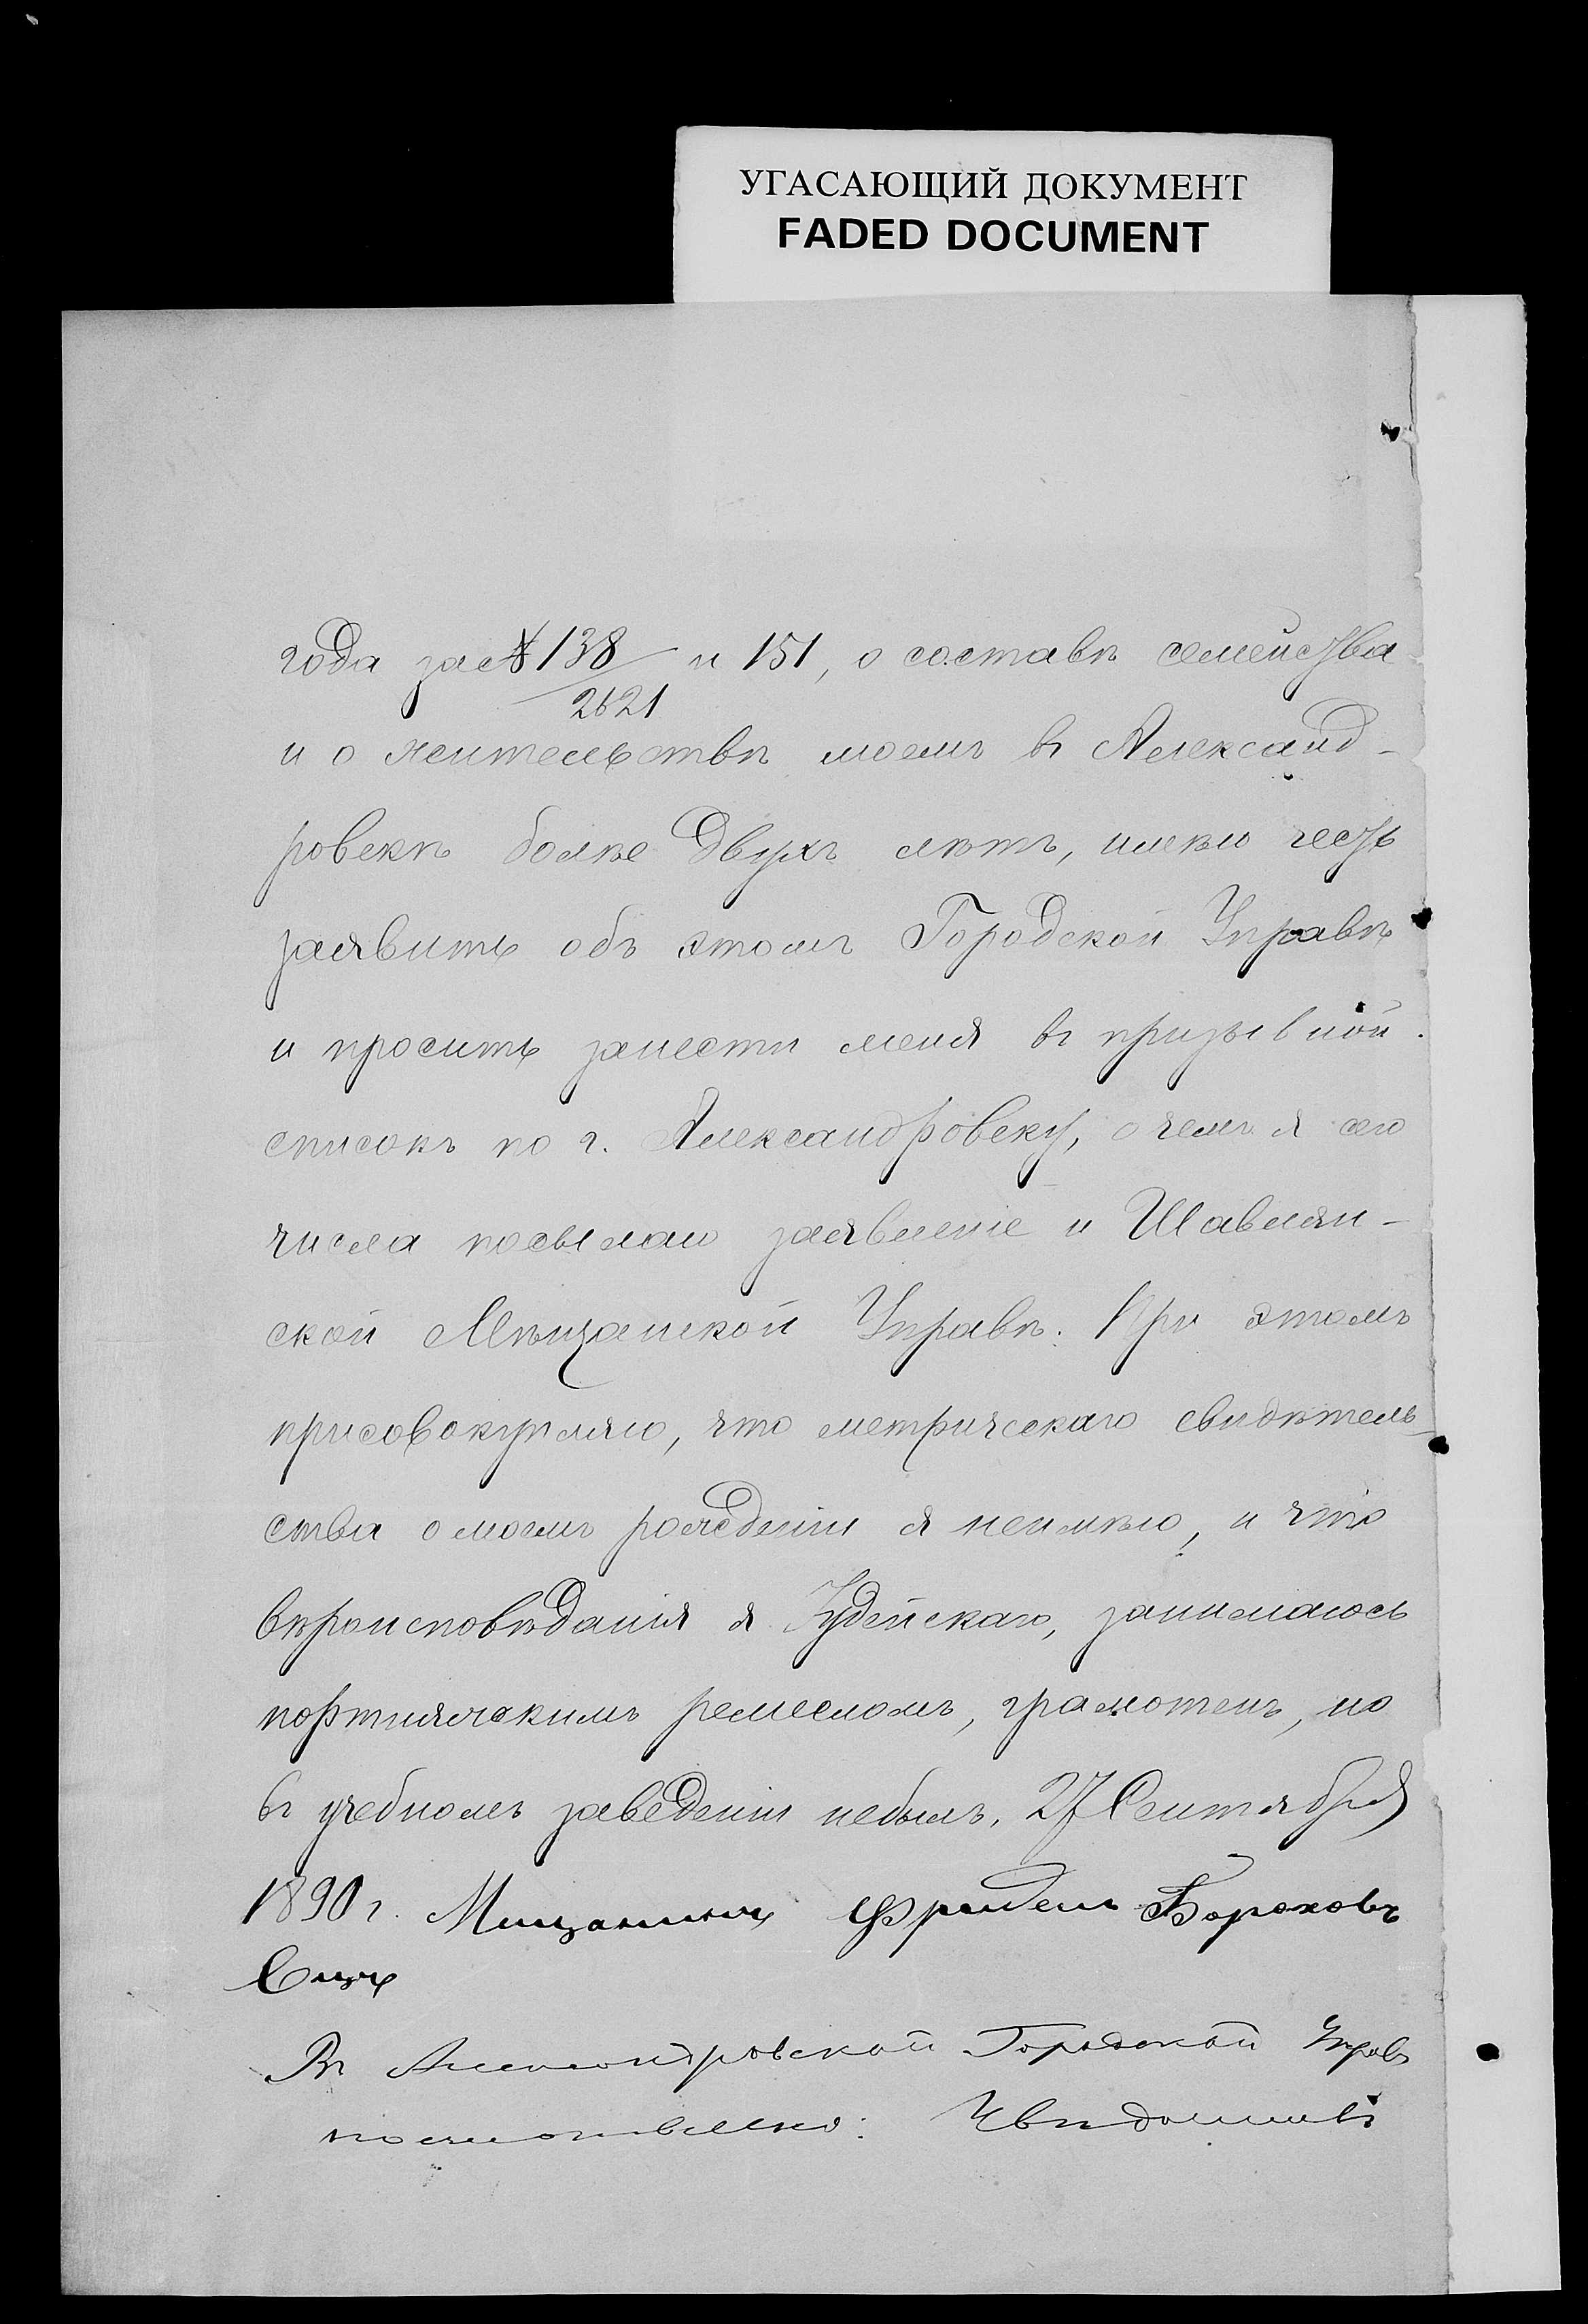 УГАСАЮЩИЙ ДОКУМЕНТ
FADED DOCUMENT
года за № 138/2621 и 151, о составѣ семейства
и о жительствѣ моемъ въ Александ-
ровскѣ болѣе двухъ лѣтъ, имѣю честь
заявить объ этомъ Городской Управѣ
и просить занести меня въ призывной
списокъ по г. Александровску, о чемъ я сего
числа посылаю заявленіе и Шавлян-
ской Мѣщанской Управѣ. При этомъ
присовокупляю, что метрическаго свидѣтель-
ства о моемъ рожденіи я неимѣю, и что
вѣроисповѣданія я Іудейскаго, занимаюсь
портняческимъ ремесломъ, грамотенъ, но
въ учебномъ заведеніи небылъ. 27 Сентября
1890 г. Мищанинъ Фридель Бороховъ
Въ Александровской Городской Управѣ
постановлено: Увѣдомивъ